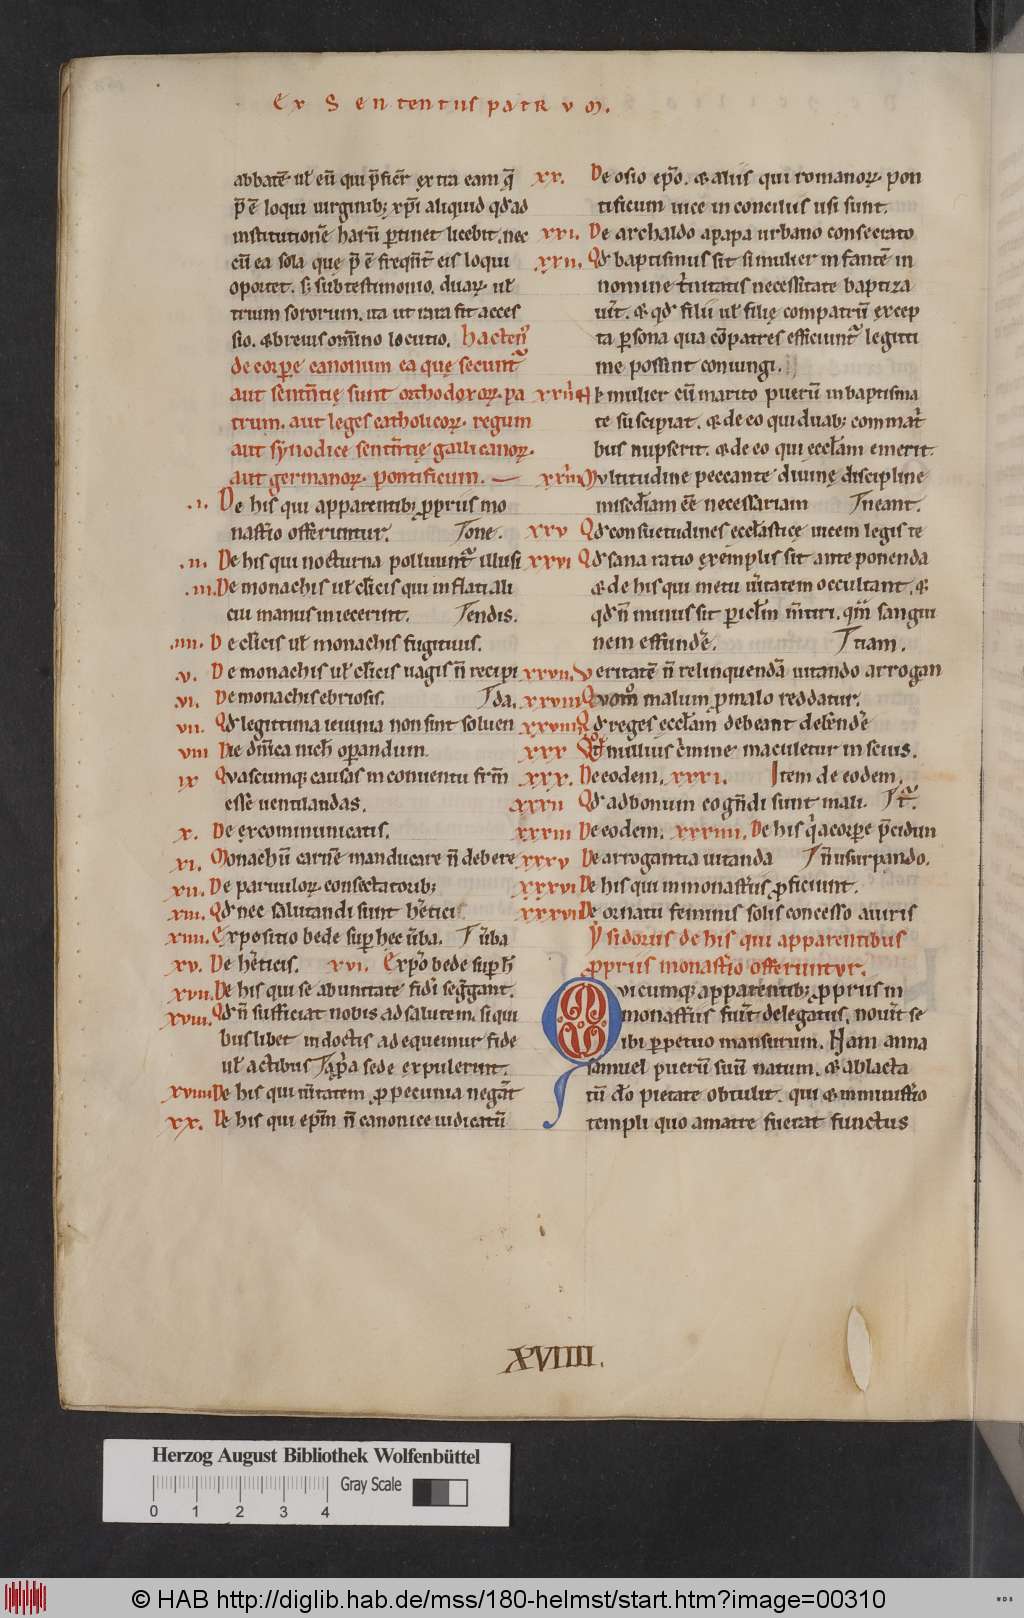 Ex Sententiis patRvm.
abbatē uł eū qui p̄fic̄r exͣ eam q̄
p̄ ē loqui uirginib; xp̄i aliquid qd̓ ad
institutionē harū ꝑtinet licebit. nec
cū ea sola que p̄ ē freqn̄t̓ eis loqui
oportet. s; sub testimonio. duaꝝ uł
trium sororum. ita ut rara fit acces
sio. & breuis om̄ino locutio. hacten᾽
de corꝑe canonum ea que secunt᷑
aut sentn̄tię sunt orthodoxoꝝ. pa
trum. aut leges catholicoꝝ. regum
aut synodice sentn̄tię gallicanoꝝ.
aut germanoꝝ. pontificum.
.i. De his qui apparentib; ꝓprus mo
nasterio offeruntur. Tione.
.ii. De his qui nocturna polluunt᷑ illusi
.iii. De monachis uł cl̓icis qui inflati ali
cui manus iniecerint. Tiendis.
.iiii. De cl̓icis uł monachis fugitiuis.
.v. De monachis uł cl̓icis uagis n̄ recipi
.vi. De monachis ebriosis. Tda.
vii. Qd̓ legittima ieiunia non sint soluen
viii De die dn̄ica nich̓ oꝑandum.
ix Qvascumq; causas in conuentu frm̄
essē uentilandas.
x. De excommunicatis.
xi. Monachū carnē manducare n̄ debere
xii. De paruuloꝝ consectatorib;
xiii. Qd̓ nec salutandi sunt h̓etici
xiiii. Expositio bede suꝑ hec ūba. T ūba
xv. De h̓eticis. xvi. Exp̄o bede suꝑ h̄
xvii. De his qui se ab unitate fidei segr̄gant.
xviii. Qd̓ n̄ sufficiat nobis ad salutem. si qui
bus libet indoctis adequemur fide
uł actibus Tap̄a sede expulerunt.
xviiii De his qui ūitatem ꝓ pecunia negant̄
xx. De his qui ep̄m n̄ canonice iudicatū
xx. De osio ep̄o. & aliis qui romanoꝝ pon
tificum uice in conciliis usi sunt.
xxi. De archaldo a papa urbano consecrato
xxii. Qd̓ baptismus sit si mulier infantem in
nomine t̓initatis necessitate baptiza
uīt. & qd̓ filii uł filię compatrū excep
ta ꝑsona qua cōpatres efficiunt᷑ legitti
me possint coniungi.
xxiii Si mulier cū marito puerū in baptisma
te suscipiat. & de eo qui duab; com mat̓
bus nupserit. & de eo qui eccłam emerit.
xxiiii Mvltitudine peccante diuinę discipline
miscdiam eē necessariam Tineant.
xxv Qd̓ consuetudines eccłasticę uicem legis te
xxvi Qd̓ sana ratio exemplis sit anteponenda
& de his qui metu ūitatem occultant. &
qd̓ n̄ minus sit ꝑiclm̄ m̄tiri. qm̄ sangui
nem effundē. Ttiam.
xxvii. Veritatē n̄ relinquendā uitando arrogan
xxviii Qvom̊ malum ꝓ malo reddatur.
xxviiii Qd̓ reges eccłam debeant defendē
xxx Qd̓ nullius c̓imine maculetur inscius.
xxx. De eodem. xxxi. Item de eodem.
xxxii Qd̓ ad bonum cogn̄di sunt mali. Tt᷑.
xxxiii De eodem. xxxiiii. De his q̓ a corꝑe p̄cidun
xxxv De arrogantia uitanda Tn̄ usurpando.
xxxvi De his qui in monasteriis ꝓficiunt.
xxxvii De ornatu feminis solis concesso auiris
Ysidorus de his qui apparentibus
ꝓpriis monasterio offeruntvr.
Qvicumq; apparentib; ꝓpriis in
monasteriis fuit̓ delegatus. nouīt se
ibi ꝑpetuo mansurum. Nam anna
samuel puerū suū natum. & ablacta
tū do̓ pietate obtulit. qui & in minist̓io
templi quo amatre fuerat functus
XVIIII.
Herzog August Bibliothek Wolfenbüttel
Gray Scale
0 1 2 3 4
© HAB http://diglib.hab.de/mss/180-helmst/start.htm?image=00310